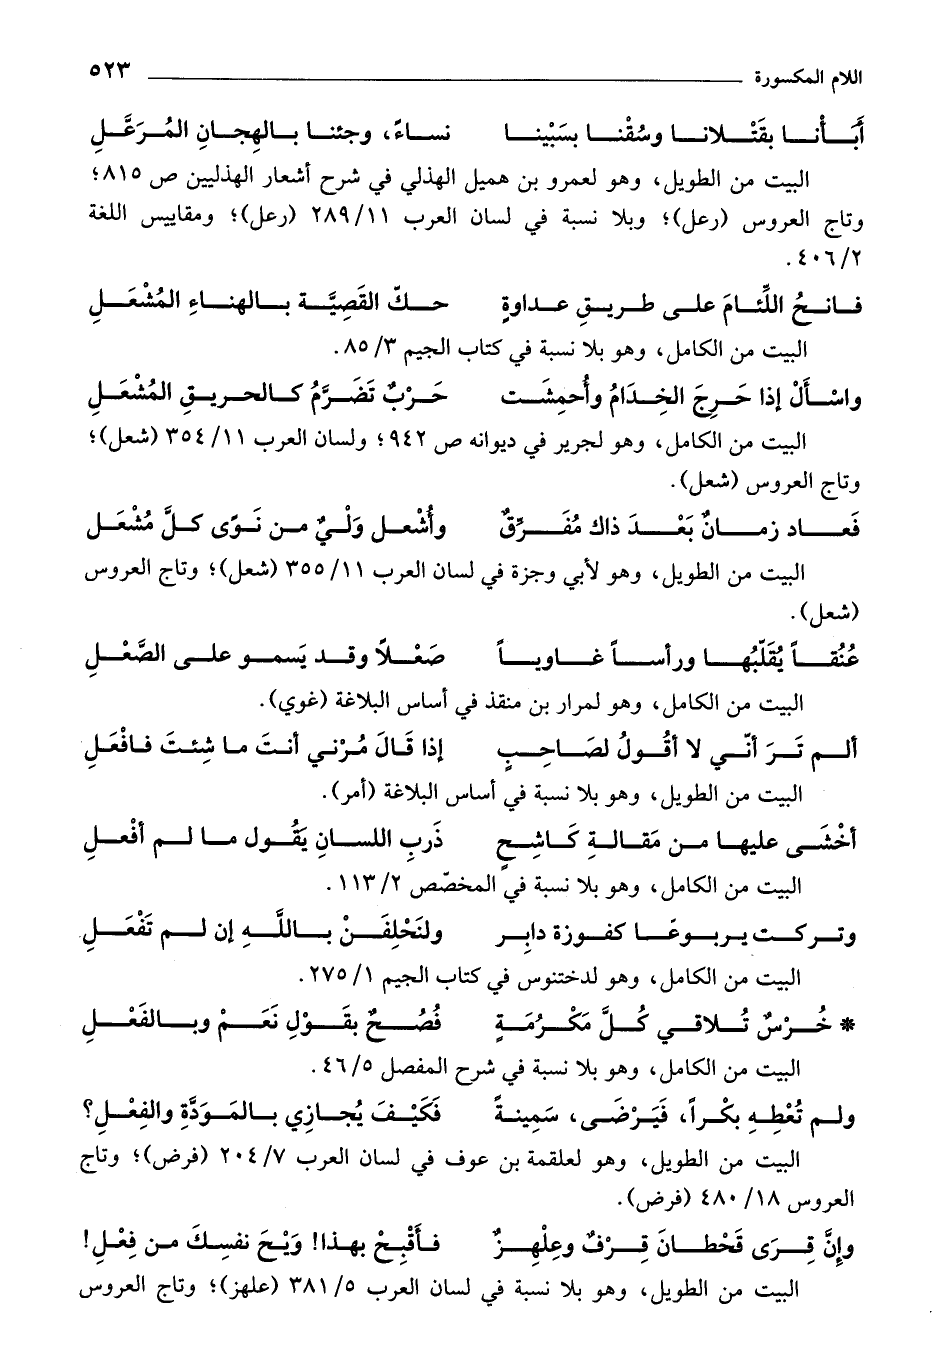 اللام المكسورة ٥٢٣
أَبَـأْنـا بقَتْـلانـا وسُقْنـا بسَبْيِنـا نساءً، وجئنـا بـالهِجـانِ المُـرَعَّـلِ
البيت من الطويل، وهو لعمرو بن هميل الهذلي في شرح أشعار الهذليين ص ٨١٥؛
وتاج العروس (رعل)؛ وبلا نسبة في لسان العرب ١١/ ٢٨٩ (رعل)؛ ومقاييس اللغة
٢/ ٤٠٦.
فـانـحُ اللِّئـامَ علـى طـريـقِ عـداوةٍ حـكّ القَصِيَّـة بـالهنـاءِ المُشْعَـلِ
البيت من الكامل، وهو بلا نسبة في كتاب الجيم ٣/ ٨٥.
واسْـأَلْ إذا حَـرِجَ الخِـدَامُ وأُحمِشَـت حَـرْبٌ تَضَـرَّمُ كـالحـريـقِ المُشْعَـلِ
البيت من الكامل، وهو لجرير في ديوانه ص ٩٤٢؛ ولسان العرب ١١/ ٣٥٤ (شعل)؛
وتاج العروس (شعل).
فَعـاد زمـانٌ بَعْـدَ ذاك مُفَـرِّقٌ وأُشْعـل وَلْـيٌ مـن نَـوًى كـلَّ مُشْعَـل
البيت من الطويل، وهو لأبي وجزة في لسان العرب ١١/ ٣٥٥ (شعل)؛ وتاج العروس
(شعل).
عُنُقـاً يُقَلّبُهـا ورأسـاً غـاويـاً صَعْـلاً وقـد يَسمـو علـى الصَّعْـلِ
البيت من الكامل، وهو لمرار بن منقذ في أساس البلاغة (غوي).
ألـم تَـرَ أنّـي لا أقُـولُ لصَـاحِـبٍ إذا قَالَ مُرْني أنتَ ما شِئتَ فافْعَلِ
البيت من الطويل، وهو بلا نسبة في أساس البلاغة (أمر).
أخْشَـى عليهـا مـن مَقـالـةِ كَـاشِـحٍ ذَربِ اللسـانِ يَقُـول مـا لـم أفْعـلِ
البيت من الكامل، وهو بلا نسبة في المخصّص ٢/ ١١٣.
وتـركـت يـربـوعًـا كفـوزة دابِـر ولنَحْلِفَـنْ بـاللَّـهِ إن لـم تَفْعَـلِ
البيت من الكامل، وهو لدختنوس في كتاب الجيم ١/ ٢٧٥.
* خُـرْسٌ تُـلاقـي كُـلَّ مَكْـرُمَـةٍ فُصُـحٌ بقَـوْلِ نَعَـمْ وبـالفَعْـلِ
البيت من الكامل، وهو بلا نسبة في شرح المفصل ٥/ ٤٦.
ولـم تُعْطِـهِ بكْـراً، فَيَـرْضَـى، سَمِينـةً فَكَيْـفَ يُجـازِي بـالمَـوَدَّةِ والفِعْـلِ؟
البيت من الطويل، وهو لعلقمة بن عوف في لسان العرب ٧/ ٢٠٤ (فرض)؛ وتاج
العروس ١٨/ ٤٨٠ (فرض).
وإنَّ قِـرَى قَحْطـانَ قِـرْفٌ وعِلْهِـزٌ فـأَقْبِـحْ بهـذا! وَيْـحَ نفسِـكَ مـن فِعْـلِ!
البيت من الطويل، وهو بلا نسبة في لسان العرب ٥/ ٣٨١ (علهز)؛ وتاج العروس